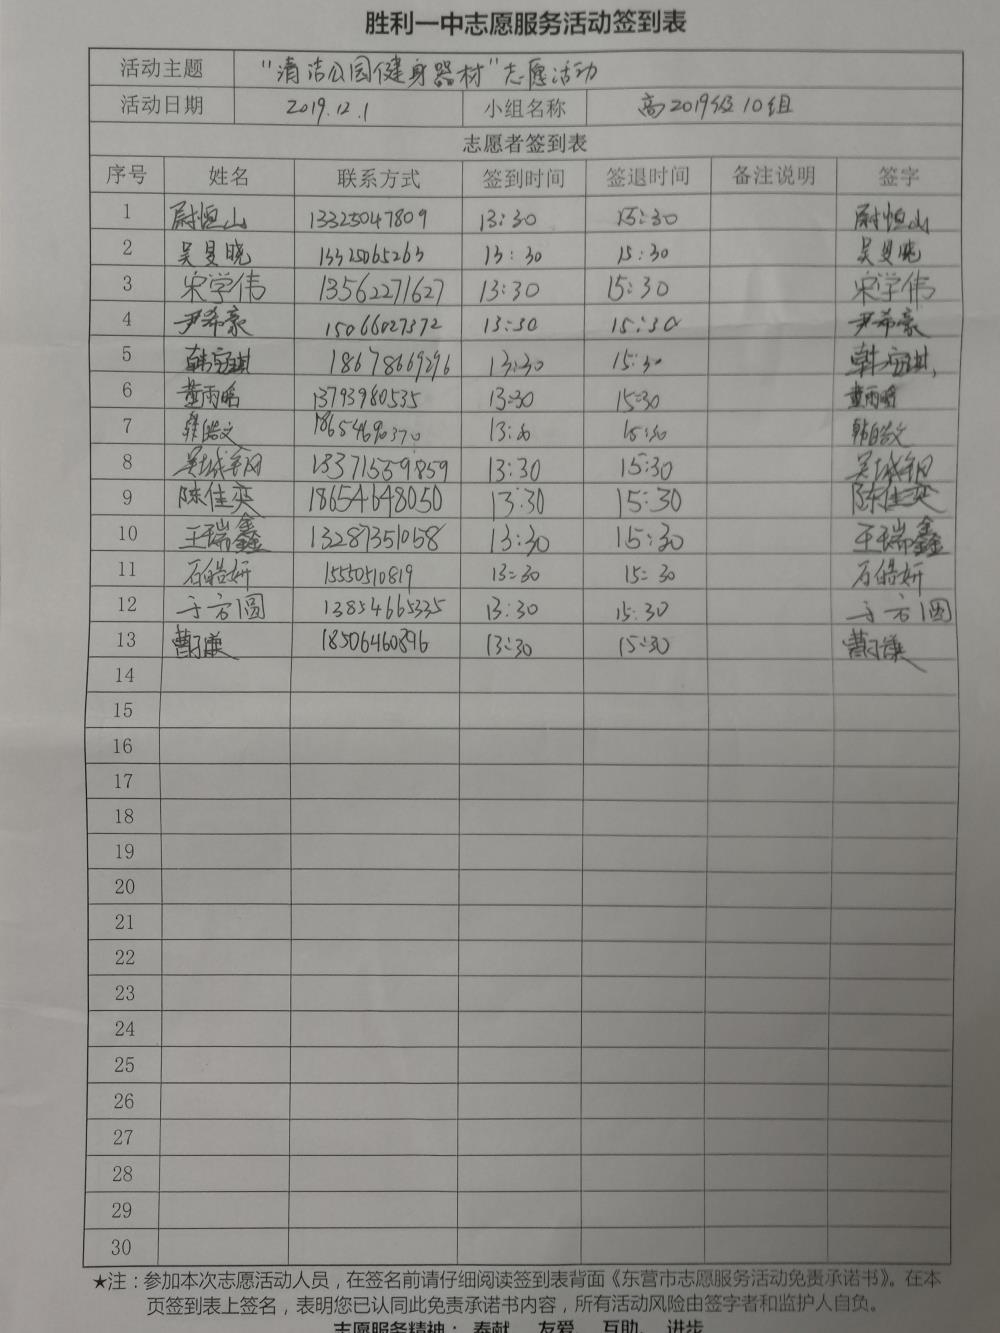 胜利一中志愿服务活动签到表
活动主题 “清洁公园健身器材”志愿活动
活动日期 2019.12.1 小组名称 高2019级10组
志愿者签到表
序号 姓名 联系方式 签到时间 签退时间 备注说明 签字
1 尉恒山 13325047809 13:30 15:30 尉恒山
2 吴旻晓 13325065263 13:30 15:30 吴旻晓
3 宋学伟 13562271627 13:30 15:30 宋学伟
4 尹希豪 15066027372 13:30 15:30 尹希豪
5 18678669296 13:30 15:30
6 董雨昭 13793980535 13:30 15:30 董雨昭
7 韩皓文 18654690370 13:30 15:30 韩皓文
8 吴城钢 13371559859 13:30 15:30 吴城钢
9 陈佳奕 18654648050 13:30 15:30 陈佳奕
10 王瑞鑫 13287351058 13:30 15:30 王瑞鑫
11 石皓妍 15550510819 13:30 15:30 石皓妍
12 于方圆 13854665335 13:30 15:30 于方圆
13 曹子谦 18506460896 13:30 15:30 曹子谦
14
15
16
17
18
19
20
21
22
23
24
25
26
27
28
29
30
★注：参加本次志愿活动人员，在签名前请仔细阅读签到表背面《东营市志愿服务活动免责承诺书》。在本
页签到表上签名，表明您已认同此免责承诺书内容，所有活动风险由签字者和监护人自负。
志愿服务精神：奉献、友爱、互助、进步